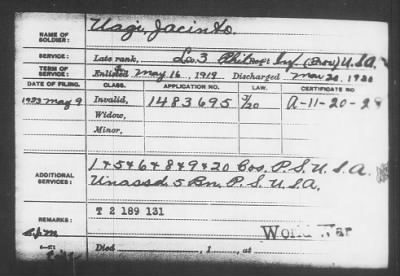 NAME OF SOLDIER: Uagi, Jacinto.
SERVICE: Late rank, Co. 3 Phil Regt Inf. (Prov.) U.S.A.
TERM OF SERVICE: Enlisted May 16, 1919 Discharged Mar 20, 1920
DATE OF FILING. CLASS. APPLICATION NO. LAW. CERTIFICATE NO
1923 May 9 Invalid, 1483695 7/20 A-11-20-28
Widow,
Minor,
ADDITIONAL SERVICES: 1+5+6+8+9+20 Cos. P.S. U.S.A.
Unassd. 5 Bn. P.S. U.S.A.
REMARKS: T 2 189 131
World War
Died , 1 , at